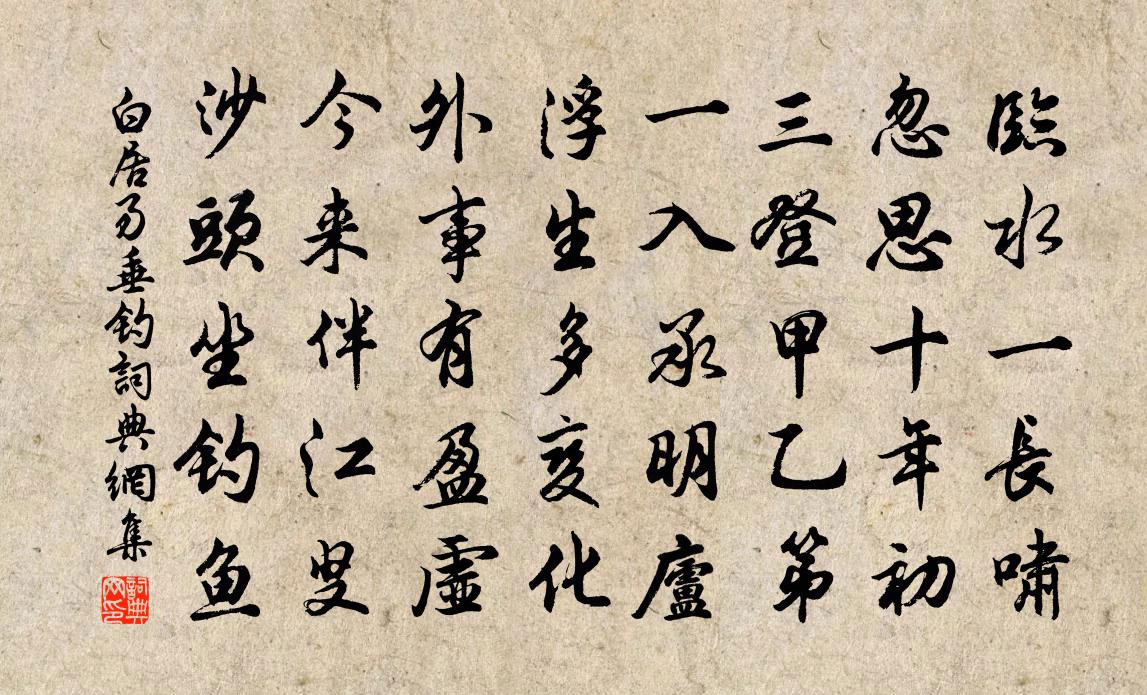 臨水一長嘯
忽思十年初
三登甲乙第
一入承明廬
浮生多變化
外事有盈虛
今来伴江叟
沙頭坐釣魚
白居易垂釣詞典網集
詞典
网印